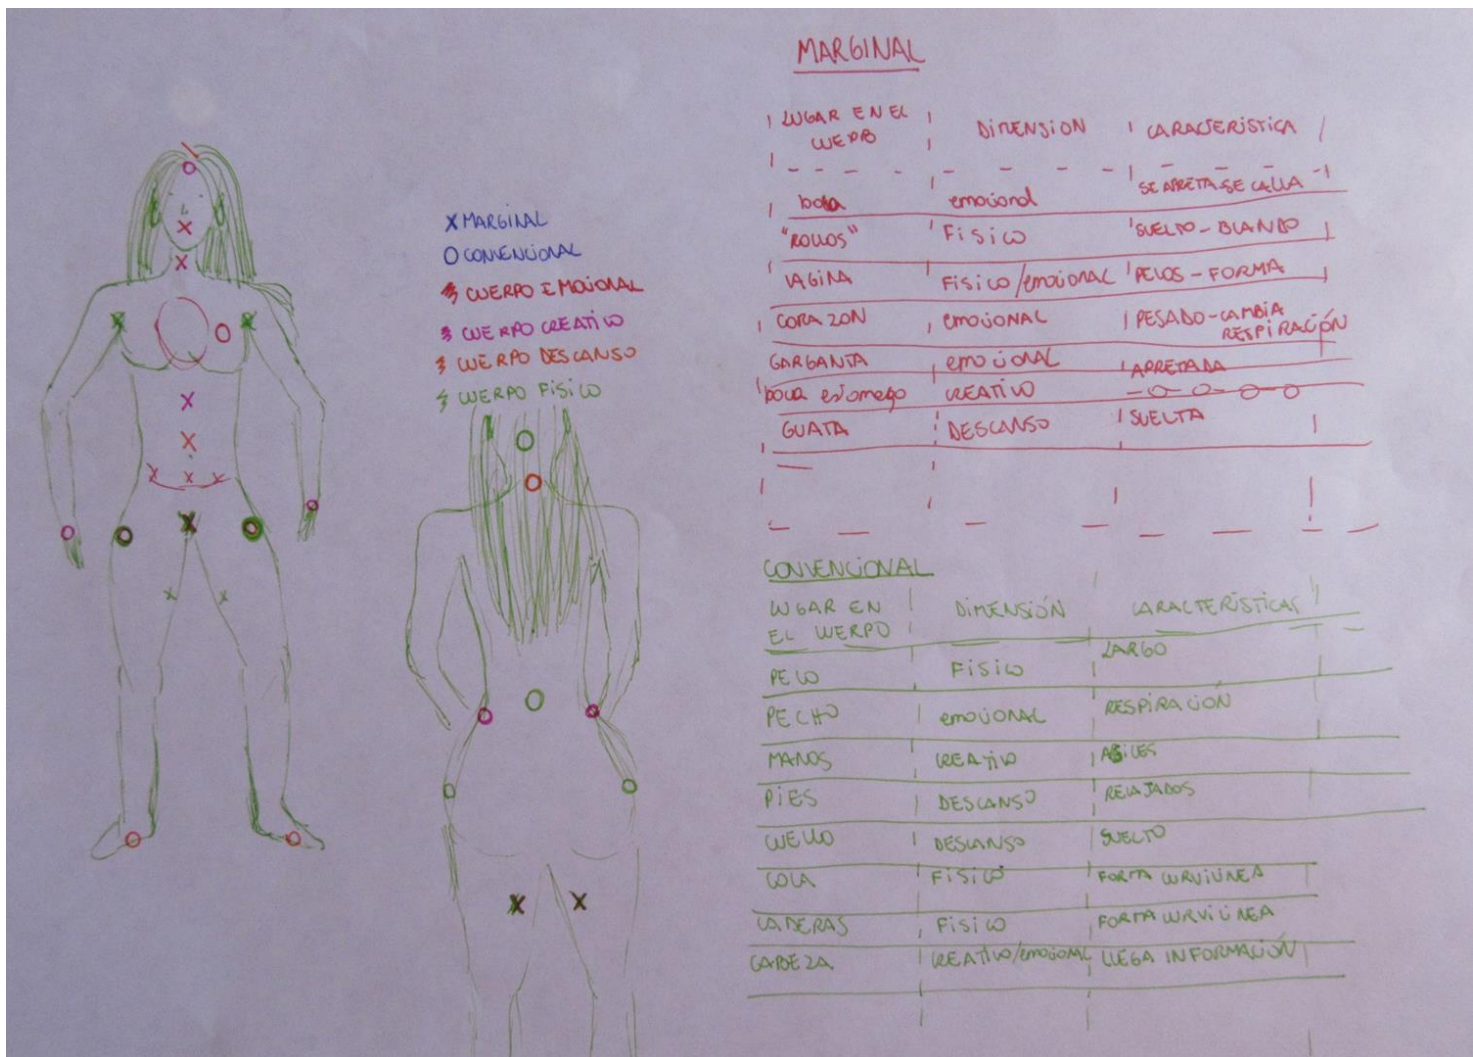 X MARGINAL
O CONVENCIONAL
CUERPO EMOCIONAL
CUERPO CREATIVO
CUERPO DESCANSO
CUERPO FÍSICO
MARGINAL
LUGAR EN EL CUERPO | DIMENSION | CARACTERÍSTICA
boca | emocional | SE APRETA-SE CALLA
"ROLLOS" | FISICO | SUELTO - BLANDO
VAGINA | FISICO/emocional | PELOS - FORMA
CORAZON | emocional | PESADO-CAMBIA RESPIRACIÓN
GARGANTA | emocional | APRETADA
boca estomago | CREATIVO
GUATA | DESCANSO | SUELTA
CONVENCIONAL
LUGAR EN EL CUERPO | DIMENSIÓN | CARACTERÍSTICAS
PELO | FISICO | LARGO
PECHO | emocional | RESPIRACIÓN
MANOS | CREATIVO | AGILES
PIES | DESCANSO | RELAJADOS
CUELLO | DESCANSO | SUELTO
COLA | FISICO | FORMA CURVILINEA
CADERAS | FISICO | FORMA CURVILINEA
CABEZA | CREATIVO/emocional | LLEGA INFORMACIÓN